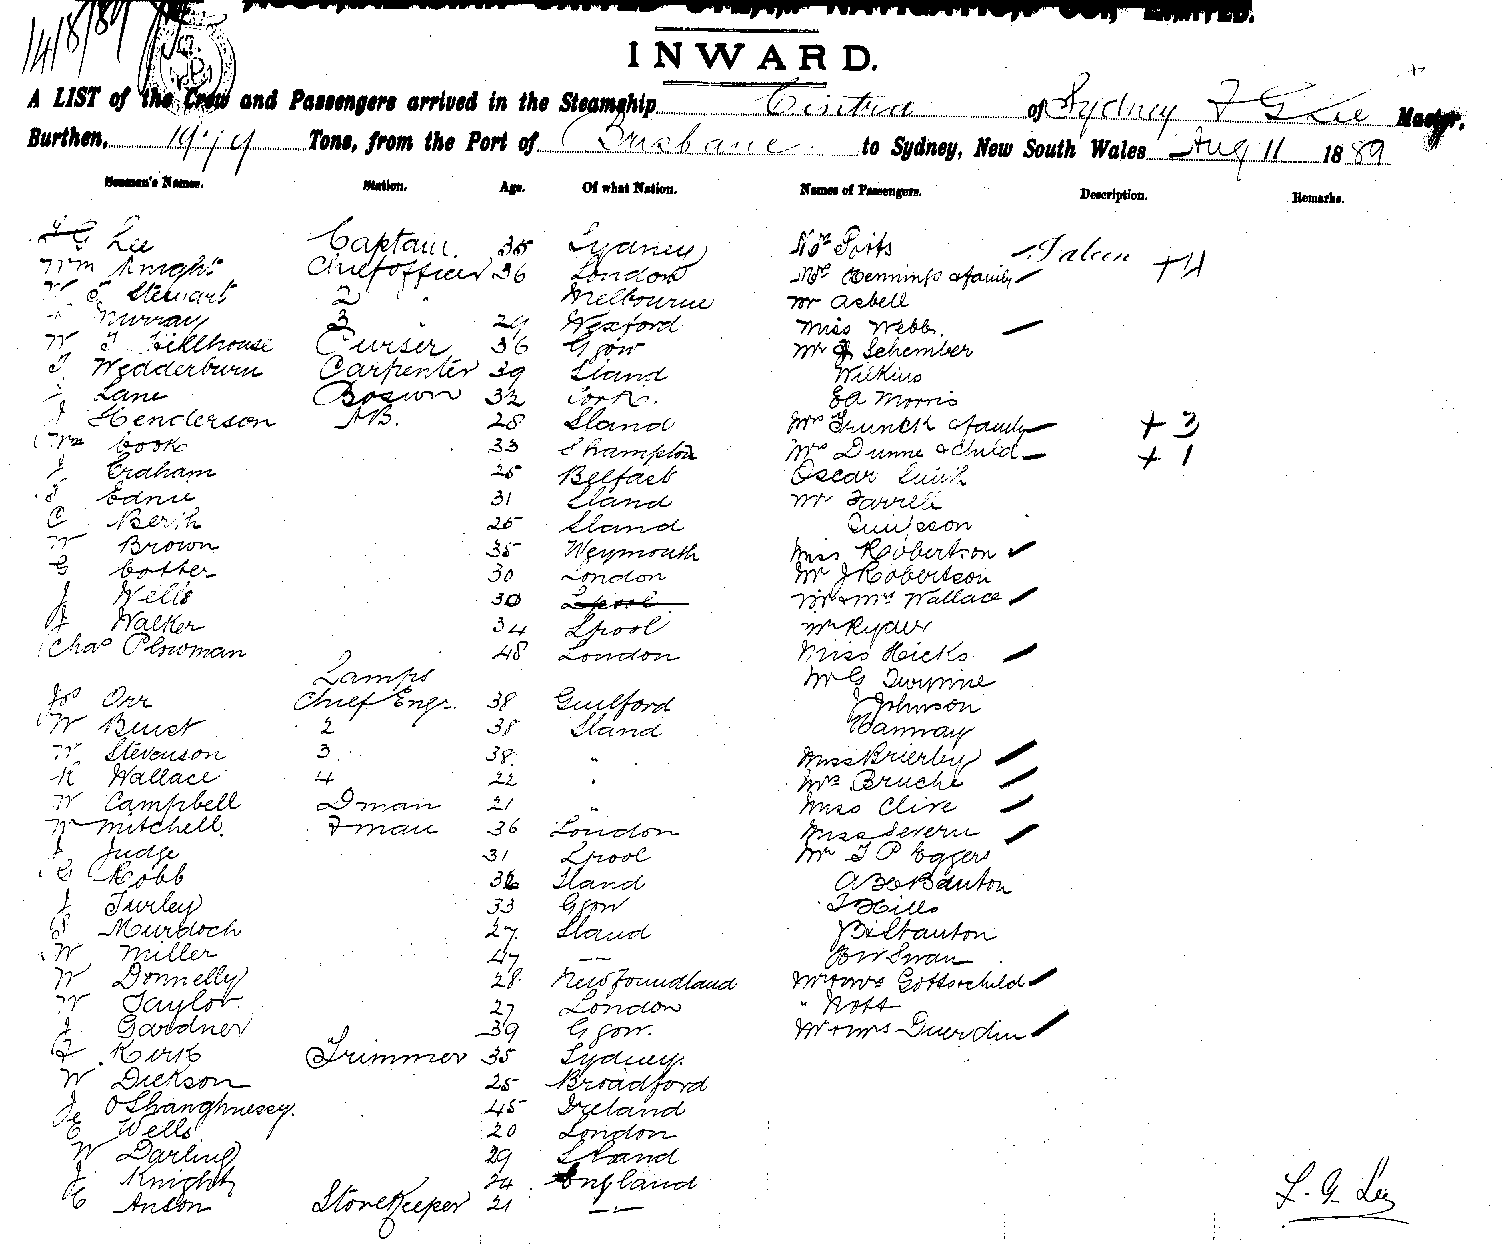 14/8/89
INWARD.
A LIST of the Crew and Passengers arrived in the Steamship Cintra of Sydney F G Lee Master,
Burthen, 1979 Tons, from the Port of Brisbane to Sydney, New South Wales Aug 11 1889
Seaman's Names. Station. Age. Of what Nation. Names of Passengers. Description. Remarks.
F G Lee Captain. 35 Sydney Mrs Potts Saloon
Wm Knight Chief officer 36 London Mrs Hennings & family +4
Stewart 2 " Melbourne Mr Asbell
Murray 3 " 29 Wexford Miss Webb.
W T Hillhouse Purser 36 Ggow Mr J Schember
T Wedderburn Carpenter 39 Sland Wilkins
J Lane Boswn 32 Cork. E A Morris
J Henderson AB. 28 Sland Mrs Trunck & family + 3
Wm Cook 33 Shampton Mrs Dunne & Child + 1
J Graham 25 Belfast Oscar
Ednie 31 Sland Mr Farrell
C Berik 25 Sland Quinsson
W Brown 35 Weymouth Miss Robertson
G Cotter 30 London Mr J Robertson
J Wells 30 Lpool Mr & Mrs Wallace
Walker 34 Lpool Mr Ryder
Chas Plowman 48 London Miss Hicks
Lamps Mr G Dwynne
Jos Orr Chief Engr. 38 Guilford J Johnson
W Buist 2 38 Sland Bannay
W Stevenson 3 38 " Miss Brierley
R Wallace 4 22 " Mrs Bruche
W Campbell Dman 21 " Miss Clive
W Mitchell. Fman 36 London Miss Severn
J Judge 31 Lpool Mr T P Eggers
Robb 36 Sland Banton
J Turley 33 Ggow Hills
Murdoch 27 Sland Stanton
W Miller 47 — Swan
W Donnelly 28 Newfoundland Mr & Mrs Gottschild
W Taylor 27 London " Nott
J Gardner 39 Ggow. Mr & Mrs Guerdin
F Kirk Trimmer 35 Sydney.
W Dickson 25 Broadford
J OShanghnessy. 45 Ireland
E Wells 20 London
W Darling 29 Sland
J Knight 24 England
E Anson StoreKeeper 21 — —
F. G. Lee